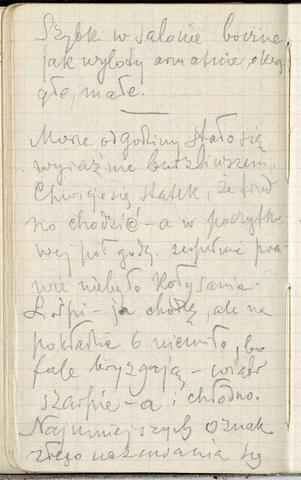 Szyby w salonie boczne
jak wyloty armatnie, okrą
głe, małe.
Morze od godziny stało się
wyraźnie burzliwszem.
Chwieje się statek, że trud
no chodzić – a w początko
wej pół godz. zupełnie pra
wie niebyło kołysania.
L. śpi – ja chodzę, ale na
pokładzie b. niemiło, bo
fale bryzgają – wiatr
szarpie – a i chłodno.
Najmniejszych oznak
złego usposobienia się